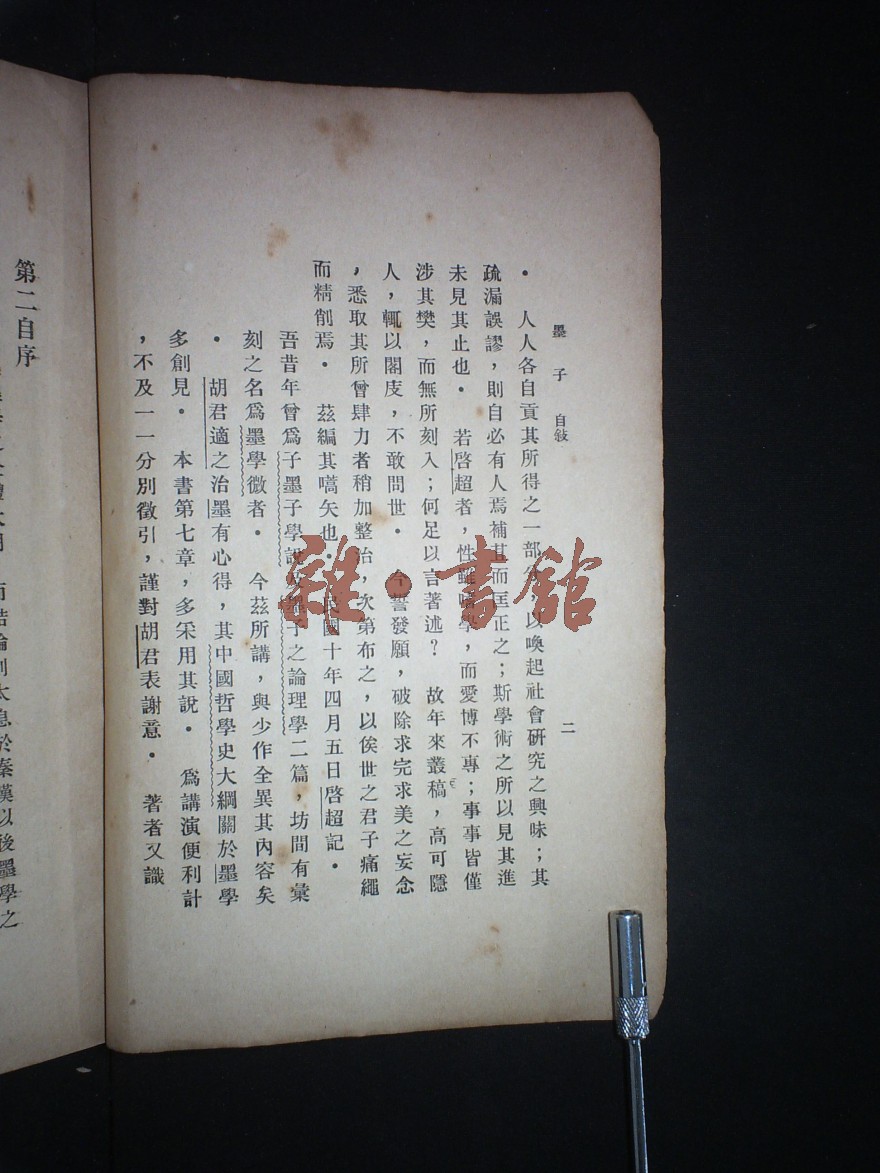 墨子 自敍
二
。人人各自貢其所得之一部分,以喚起社會硏究之興味;其
疏漏誤謬,則自必有人焉補苴而匡正之;斯學術之所以見其進
未見其止也。若啓超者,性雖嗜學,而愛博不專;事事皆僅
涉其樊,而無所刻入;何足以言著述?故年來叢稿,高可隱
人,輒以閣庋,不敢問世。今誓發願,破除求完求美之妄念
,悉取其所曾肆力者稍加整治,次第布之,以俟世之君子痛繩
而精削焉。茲編其嚆矢也。民國十年四月五日啓超記。
吾昔年曾爲子墨子學說及墨子之論理學二篇,坊間有彙
刻之名爲墨學微者。今茲所講,與少作全異其內容矣
。胡君適之治墨有心得,其中國哲學史大綱關於墨學
多創見。本書第七章,多采用其說。爲講演便利計
,不及一一分別徵引,謹對胡君表謝意。著者又識
第二自序
於秦漢以後墨學之
雜·書館